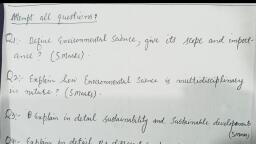 Attempt all questions:
Q1:- Define Environmental Science, give its scope and import-
ance? (5 Marks).
Q2:- Explain how Environmental Science is multidisciplinary
in nature? (5 Marks).
Q3:- Explain in detail Sustainability and Sustainable development
(5 Marks)
Explain in detail the different